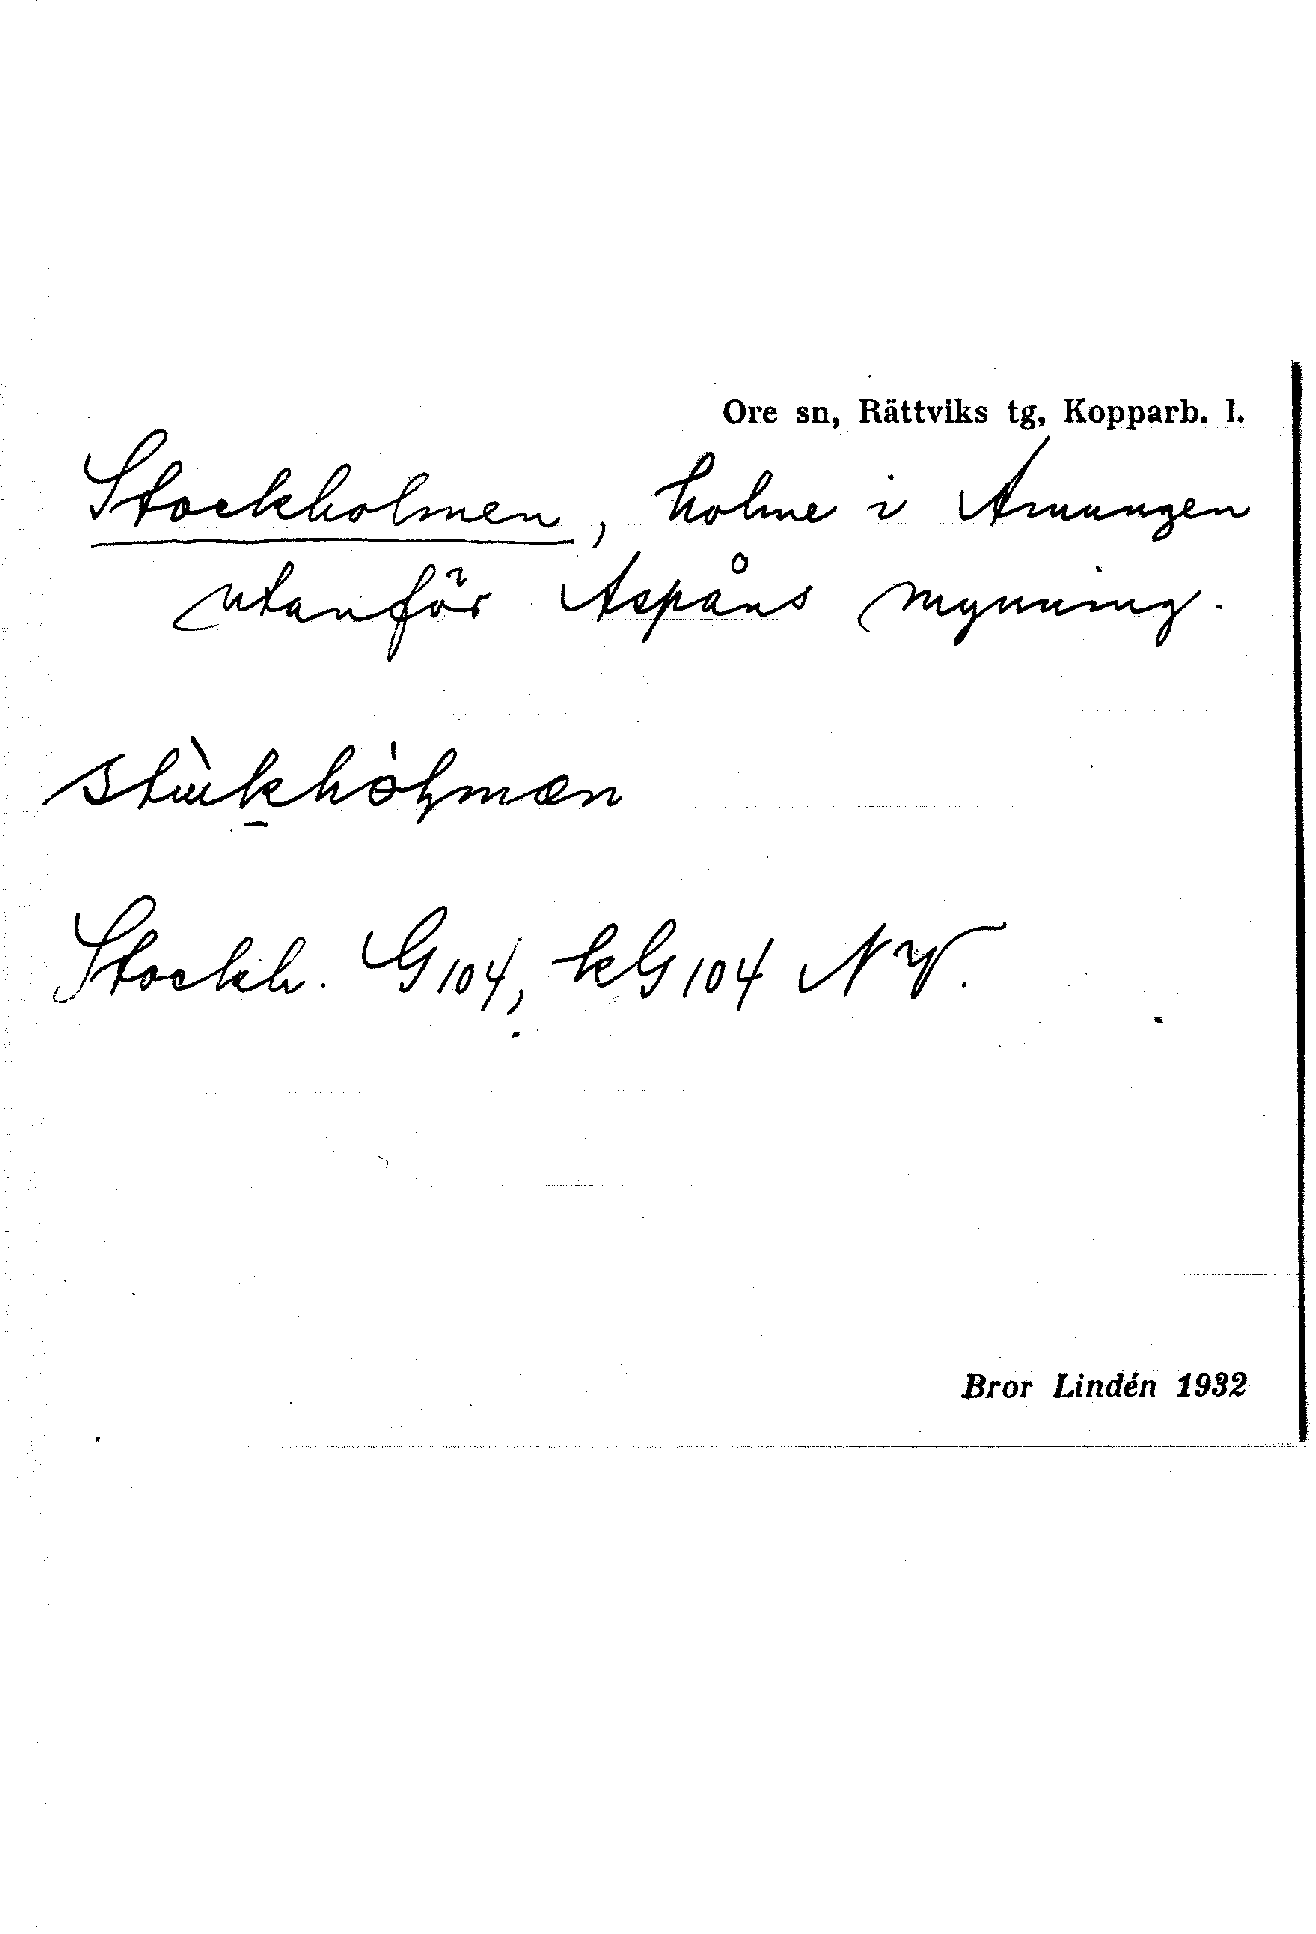 Ore sn, Rättviks tg, Kopparb. l.
Stockholmen, holme i Amungen
utanför Aspåns mynning.
Stockh. G104, kG104 NV.
Bror Lindén 1932